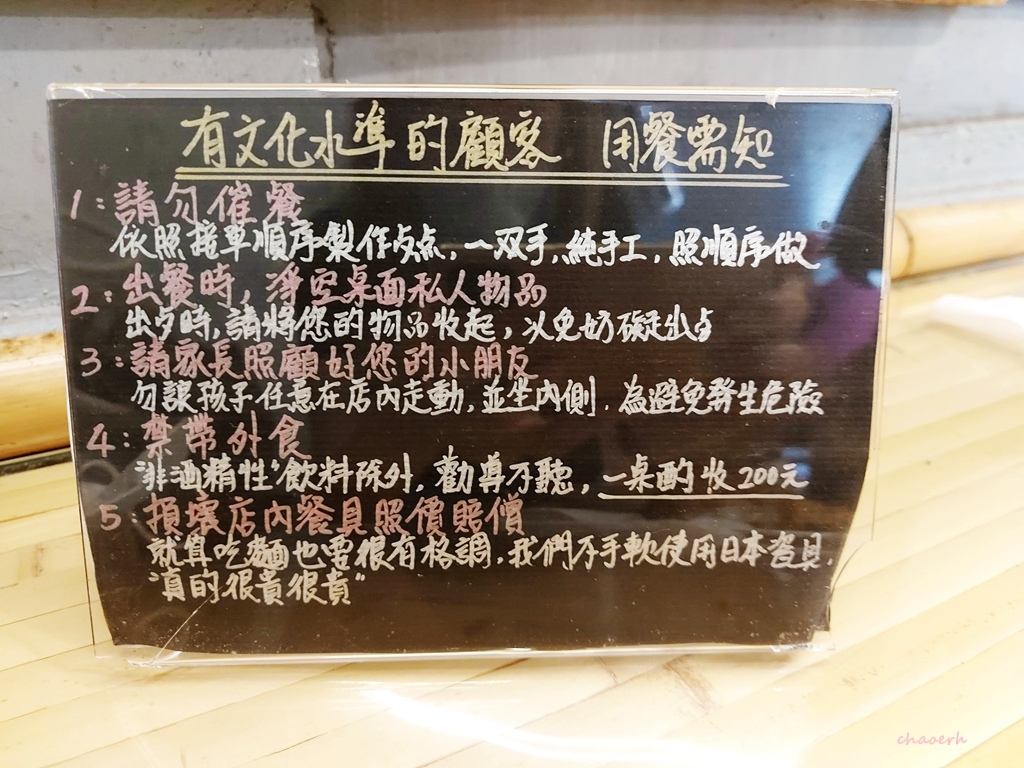 有文化水準的顧客 用餐需知
1:請勿催餐
依照接單順序製作点点,一双手,純手工,照順序做
2:出餐時,淨空桌面私人物品
出歺時,請將您的物品收起,以免妨礙走出点
3:請家長照顧好您的小朋友
勿讓孩子任意在店內走動,並坐內側.為避免發生危險
4:禁帶外食
"非酒精性"飲料除外,勸導不聽,一桌酌收200元
5:損壞店內餐具照價賠償
就算吃麵也要很有格調,我們不手軟使用日本瓷具.
"真的很貴很貴"
chaoerh